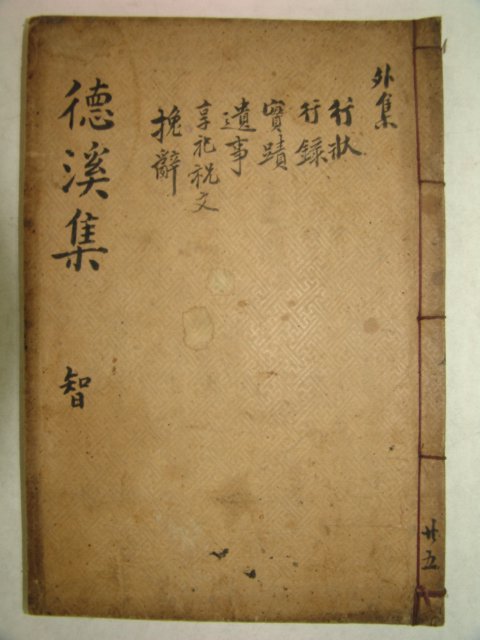 外集
行狀
行錄
實蹟
遺事
享祀祝文
挽辭
德溪集 智
廿五